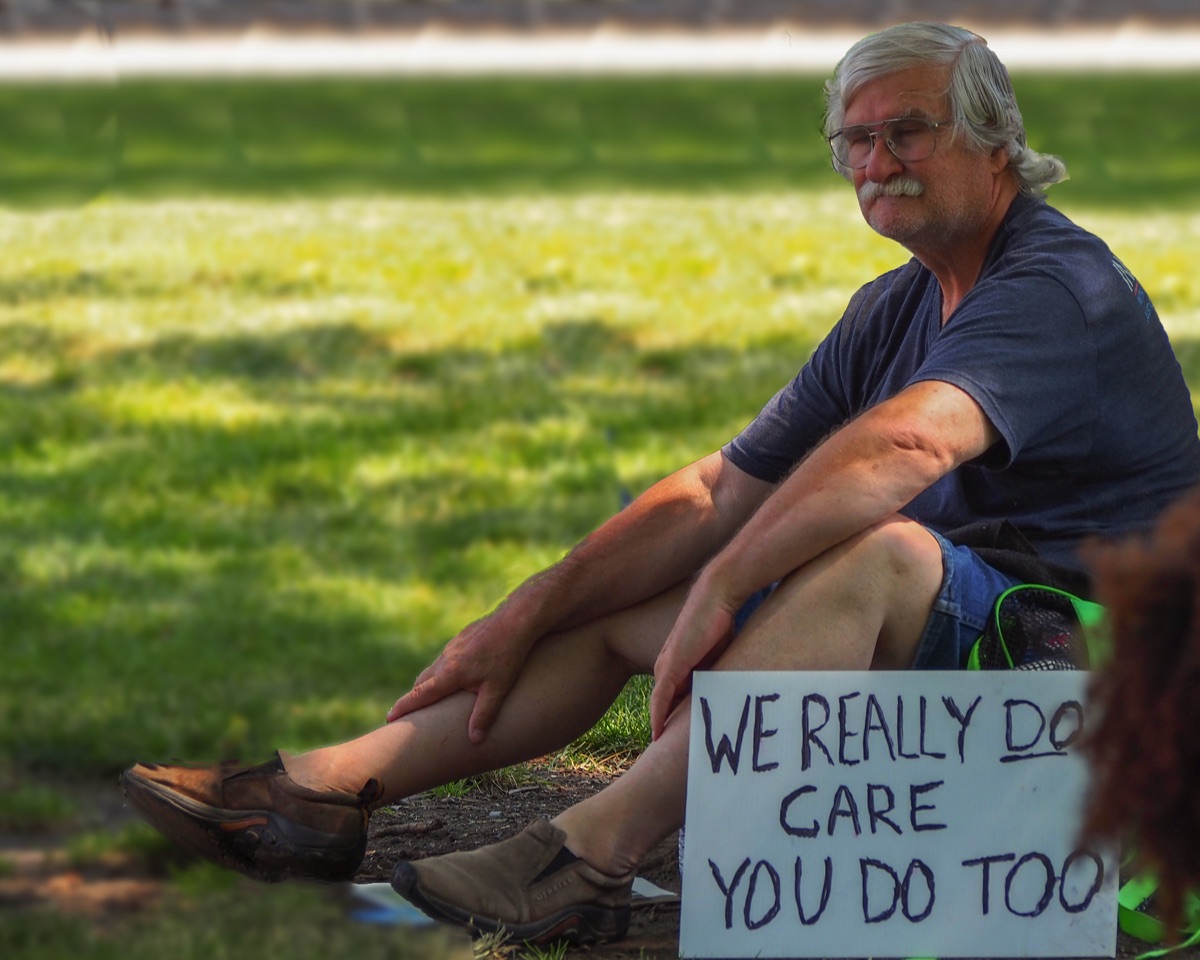 WE REALLY DO
CARE
YOU DO TOO